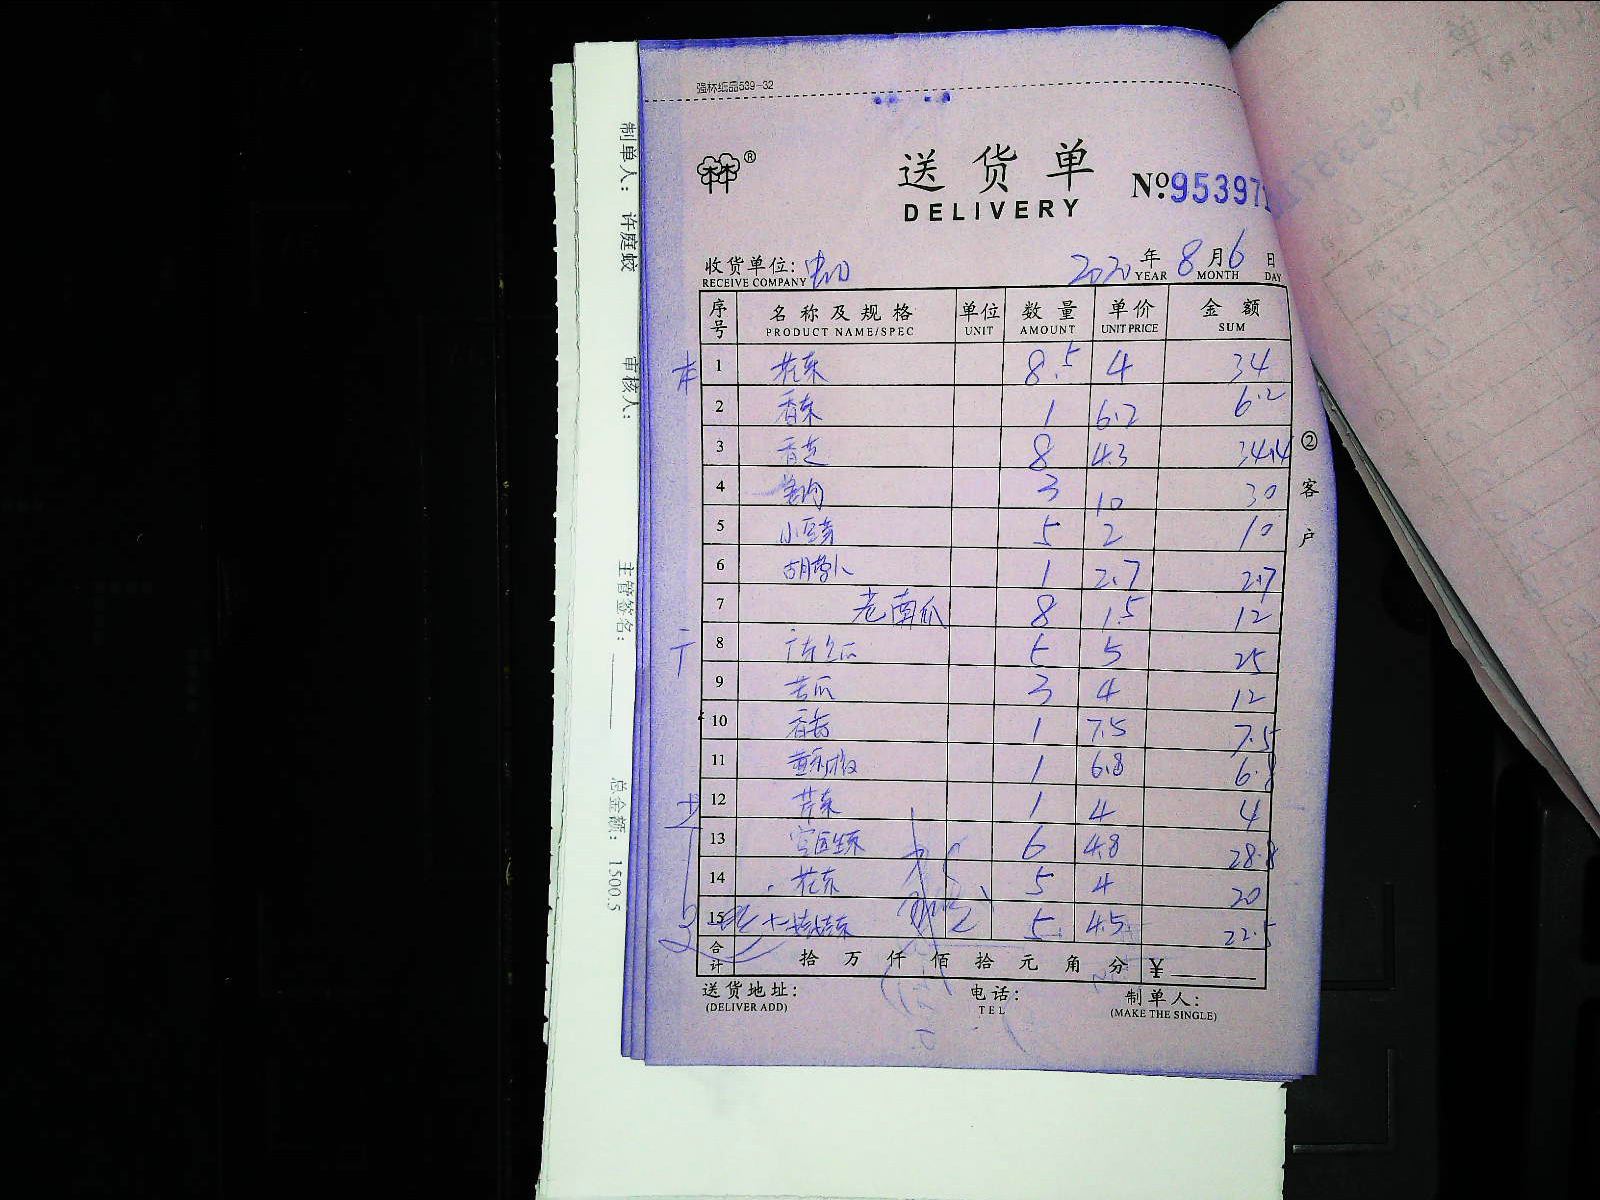 强林纸品539-32
送货单
DELIVERY
No.953971
收货单位:
RECEIVE COMPANY
2020年8月6日
YEAR MONTH DAY
序号 名称及规格 单位 数量 单价 金额
PRODUCT NAME/SPEC UNIT AMOUNT UNIT PRICE SUM
1 花菜 8.5 4 34
2 香菜 1 6.2 6.2
3 香芝 8 4.3 34.4
4 3 10 30
5 小豆芽 5 2 10
6 胡萝卜 1 2.7 2.7
7 老南瓜 8 1.5 12
8 5 5 25
9 苦瓜 3 4 12
10 1 7.5 7.5
11 1 6.8 6.8
12 芹菜 1 4 4
13 6 4.8 28.8
14 花菜 5 4 20
15 5 4.5 22.5
合计 拾万仟佰拾元角分 ¥
送货地址: 电话: 制单人:
(DELIVER ADD) TEL (MAKE THE SINGLE)
②客户
制单人: 许庭蛟 审核人: 主管签名: 总金额: 1500.5